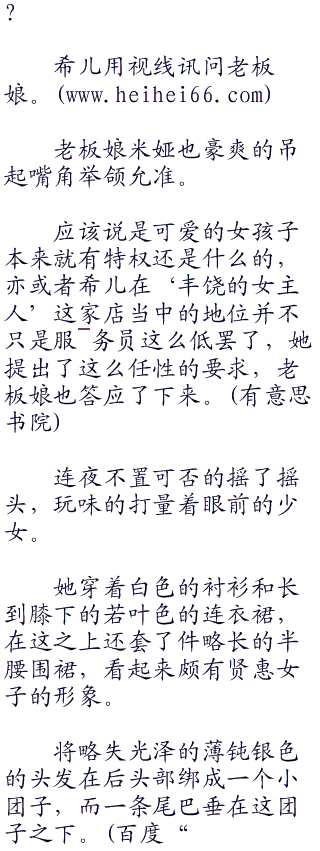 ?
希儿用视线讯问老板
娘。(www.heihei66.com)
老板娘米娅也豪爽的吊
起嘴角举颌允准。
应该说是可爱的女孩子
本来就有特权还是什么的，
亦或者希儿在‘丰饶的女主
人’这家店当中的地位并不
只是服ˉ务员这么低罢了，她
提出了这么任性的要求，老
板娘也答应了下来。(有意思
书院)
连夜不置可否的摇了摇
头，玩味的打量着眼前的少
女。
她穿着白色的衬衫和长
到膝下的若叶色的连衣裙，
在这之上还套了件略长的半
腰围裙，看起来颇有贤惠女
子的形象。
将略失光泽的薄钝银色
的头发在后头部绑成一个小
团子，而一条尾巴垂在这团
子之下。(百度“